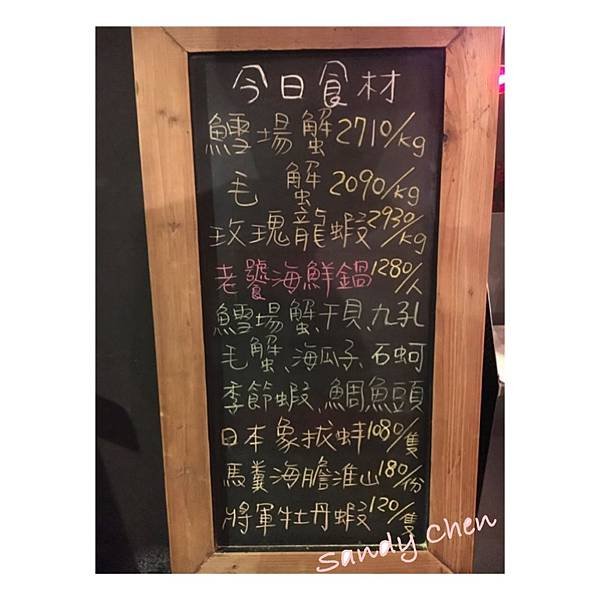 今日食材
鱈場蟹2710/kg
毛蟹2090/kg
玫瑰龍蝦2930/kg
老號食海鮮鍋1280/人
鱈場蟹、干貝、九孔
毛蟹、海瓜子、石蚵
季節蝦、鯛魚頭
日本象拔蚌1080/隻
馬糞海膽淮山180/份
將軍牡丹蝦120/隻
Sandy Chen